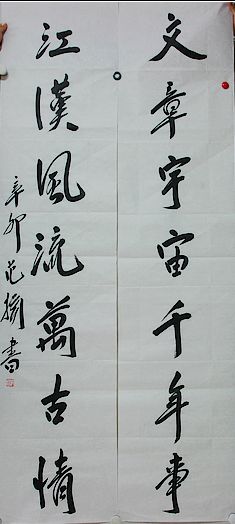 文章宇宙千年事
江漢風流萬古情
辛卯范揚書